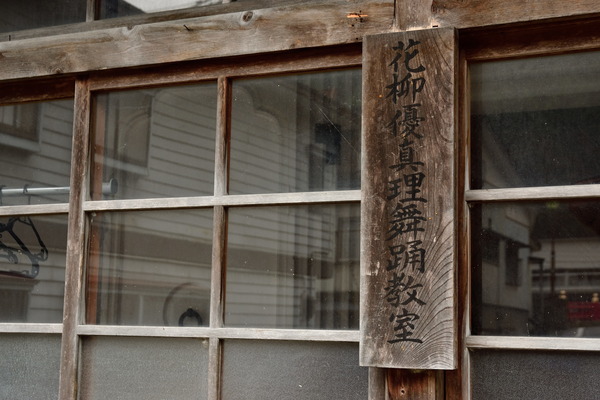 花柳優真理舞踊教室